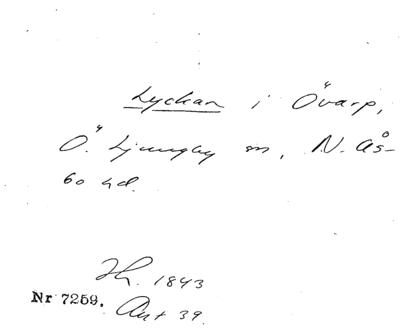 Lyckan i Övarp,
Ö. Ljungby sn, N. Ås-
bo hd.
Th. 1843
Nr 7259. Ant 39.